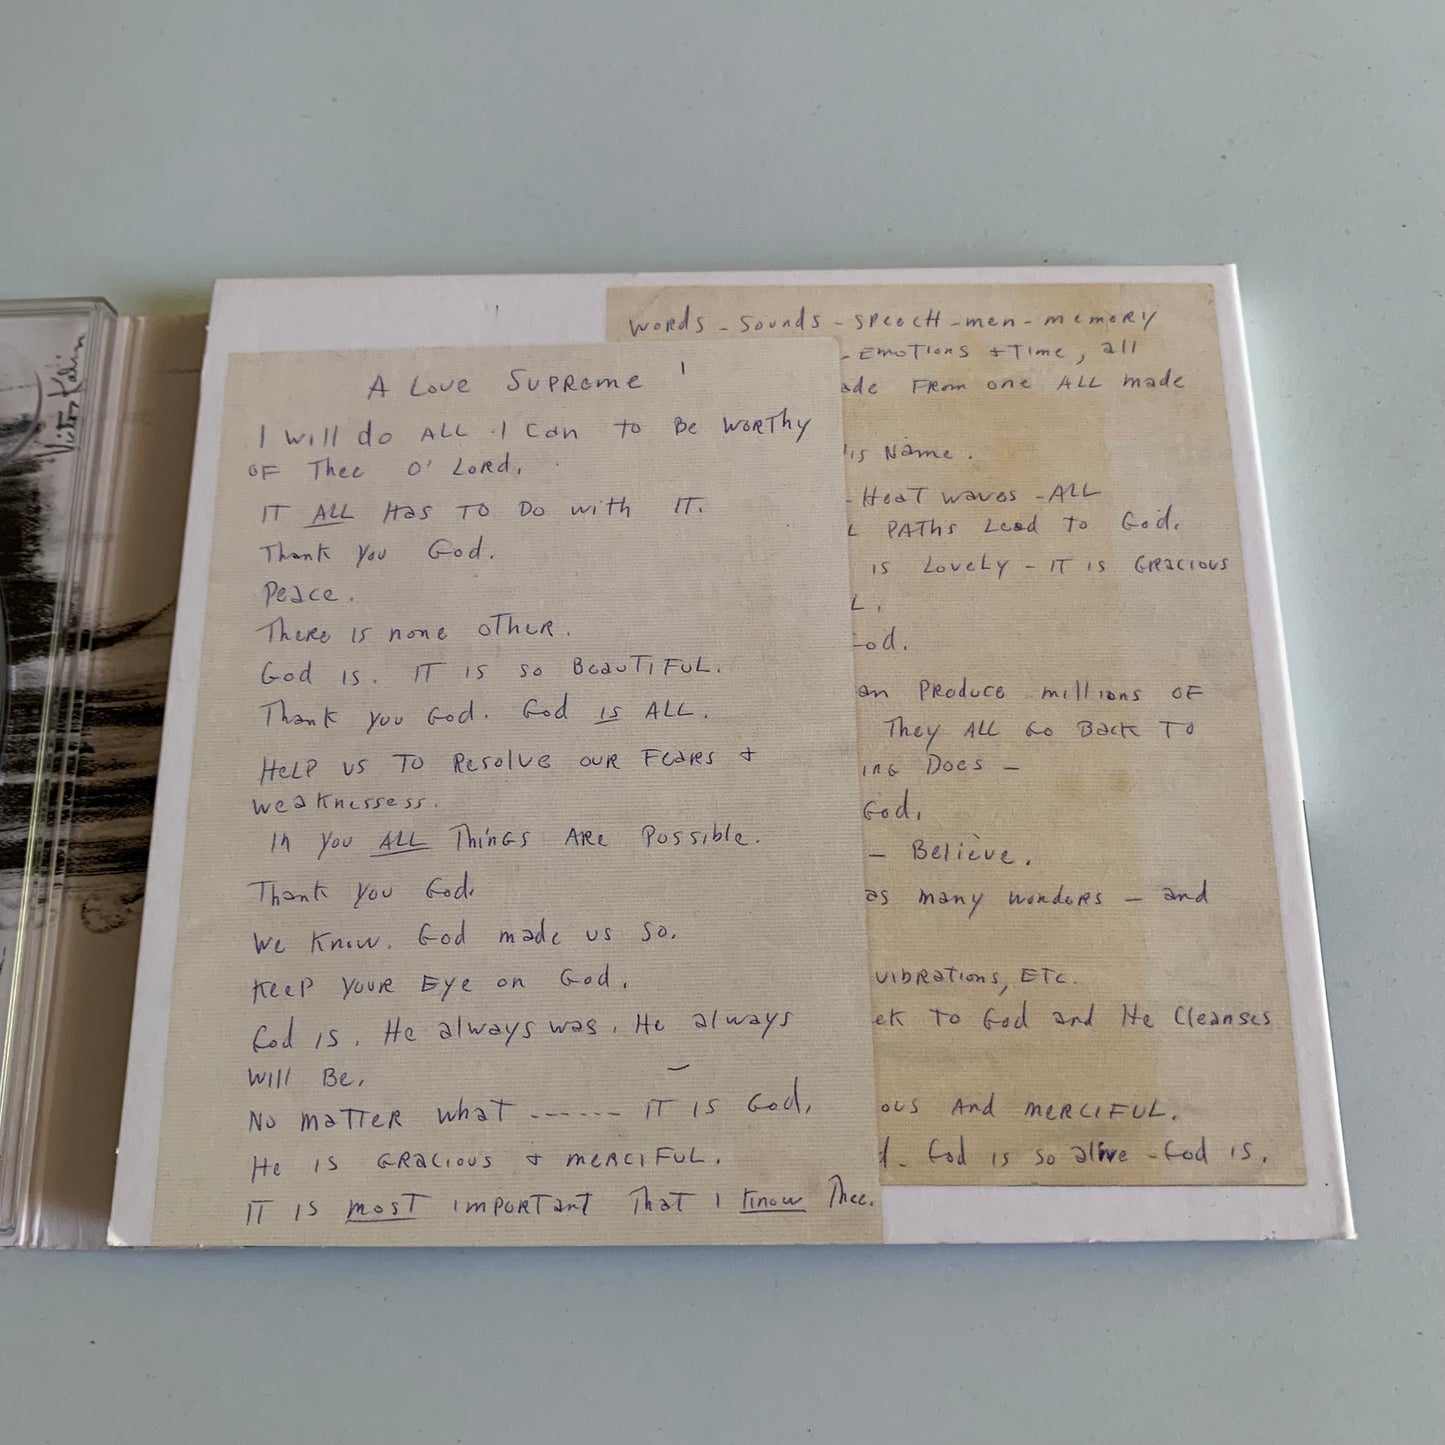 Victor Kalin
A Love Supreme 1
I will do ALL I can to Be Worthy
OF Thee O' Lord.
IT ALL Has TO Do with IT.
Thank you God.
Peace.
There is none other.
God is. IT is so BeauTiFul.
Thank you God. God is ALL.
Help us TO Resolve our Fears +
weaknessess.
In you ALL Things Are Possible.
Thank you God.
We Know. God made us so.
Keep your Eye on God.
God is. He always was. He always
will Be.
No maTTeR whaT ------ IT is God.
He is Gracious + merciful.
IT is most importanT ThaT I Know Thee.
Words - Sounds - SPeecH - men - memory
- EmoTions + Time, all
ade From one ALL made
is Name.
- HeaT waves - ALL
L PATHs Lead to God.
is Lovely - IT is Gracious
L.
od.
an Produce millions OF
They ALL Go Back TO
ing Does -
God.
- Believe.
as many wonders - and
vibrations, ETC.
ek To God and He Cleanses
ous And merciful.
d. God is so alive - God is.